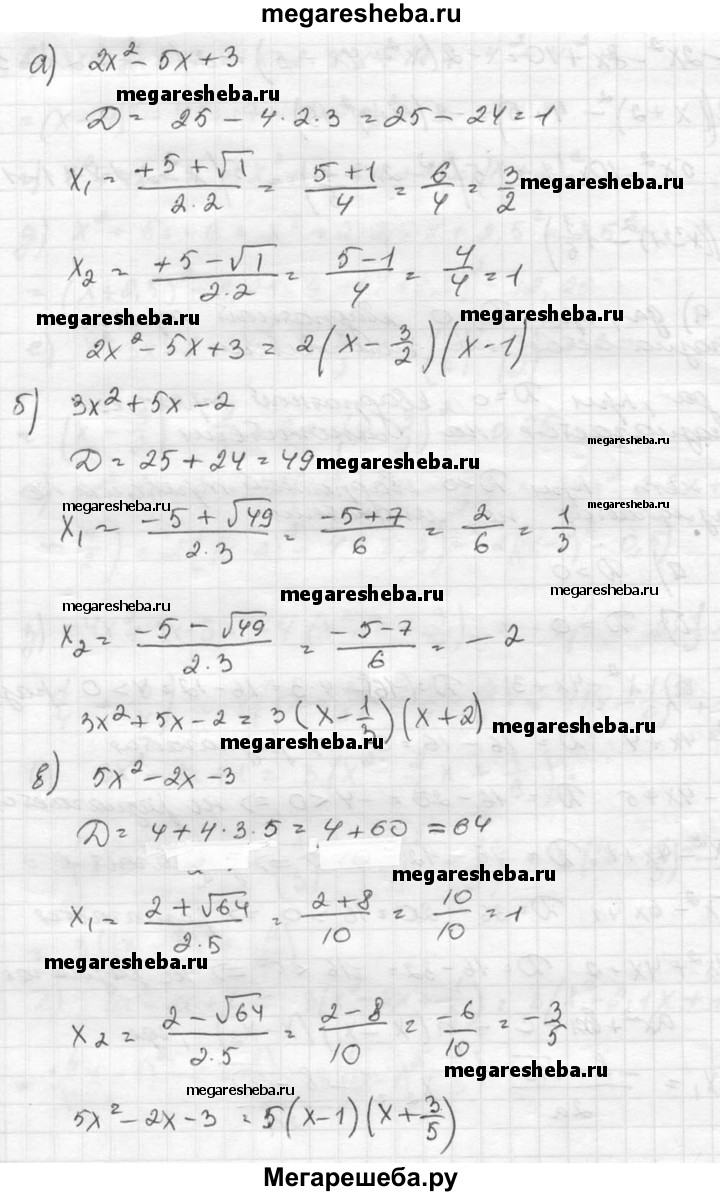 megaresheba.ru
а) 2x² - 5x + 3
megaresheba.ru
D = 25 - 4·2·3 = 25 - 24 = 1
x₁ = (+5 + √1)/(2·2) = (5+1)/4 = 6/4 = 3/2 megaresheba.ru
x₂ = (+5 - √1)/(2·2) = (5-1)/4 = 4/4 = 1
megaresheba.ru megaresheba.ru
2x² - 5x + 3 = 2(x - 3/2)(x - 1)
б) 3x² + 5x - 2
megaresheba.ru
D = 25 + 24 = 49 megaresheba.ru
megaresheba.ru megaresheba.ru
x₁ = (-5 + √49)/(2·3) = (-5+7)/6 = 2/6 = 1/3
megaresheba.ru megaresheba.ru megaresheba.ru
x₂ = (-5 - √49)/(2·3) = (-5-7)/6 = -2
3x² + 5x - 2 = 3(x - 1/3)(x + 2) megaresheba.ru
megaresheba.ru
в) 5x² - 2x - 3
D = 4 + 4·3·5 = 4 + 60 = 64
megaresheba.ru
x₁ = (2 + √64)/(2·5) = (2+8)/10 = 10/10 = 1
megaresheba.ru
x₂ = (2 - √64)/(2·5) = (2-8)/10 = -6/10 = -3/5
megaresheba.ru
megaresheba.ru
5x² - 2x - 3 = 5(x - 1)(x + 3/5)
Мегарешеба.ру